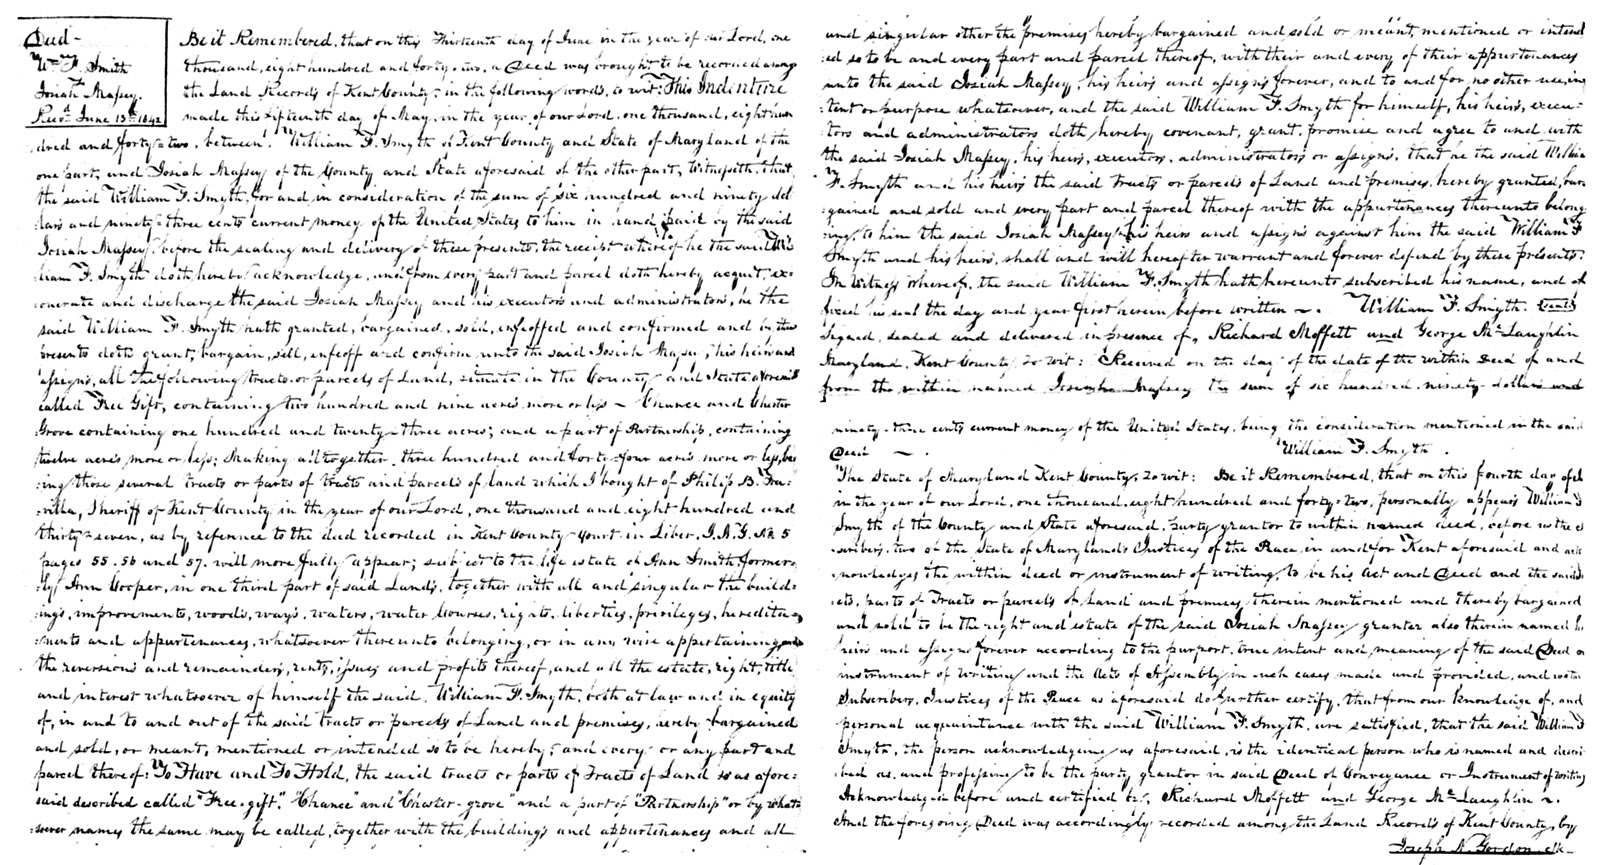 Deed-
Wm F. Smith
Josiah Massey.
Recd June 13th 1842
Be it Remembered, that on this Thirteenth day of June in the year of our Lord, one
thousand, eight hundred and forty-two, a Deed was brought to be recorded among
the Land Records of Kent County, in the following words, to wit: This Indenture
made this fifteenth day of May, in the year of our Lord, one thousand, eight hun
dred and forty-two, between William F. Smyth of Kent County and State of Maryland of the
one part, and Josiah Massey of the County and State aforesaid of the other part, Witnesseth, that
the said William F. Smyth, for and in consideration of the sum of six hundred and ninety dol
lars and ninety-three cents current money of the United States to him in hand paid by the said
Josiah Massey, before the sealing and delivery of these presents, the receipt whereof he the said Wil
liam F. Smyth doth hereby acknowledge, and from every part and parcel doth hereby acquit, ex
onerate and discharge the said Josiah Massey and his executors and administrators, he the
said William F. Smyth hath granted, bargained, sold, enfeoffed and confirmed and by these
presents doth grant, bargain, sell, enfeoff and confirm unto the said Josiah Massey, his heirs and
assigns, all the following tracts or parcels of Land, situate in the County and State aforesaid
called Free Gift, containing two hundred and nine acres more or less - Chance and Chester
Grove containing one hundred and twenty-three acres; and a part of Partnership, containing
twelve acres more or less; Making altogether three hundred and forty-four acres more or less, be
ing those several tracts or parts of tracts and parcels of land which I bought of Philip B. Tra-
villa, Sheriff of Kent County in the year of our Lord, one thousand and eight hundred and
thirty-seven, as by reference to the deed recorded in Kent County Court in Liber, J.N.G. No 5
pages 55. 56 and 57. will more fully appear; subject to the life estate of Ann Smith, former
ly Ann Cooper, in one third part of said Lands, together with all and singular the build-
ings, improvements, woods, ways, waters, water courses, rights, liberties, privileges, heredita-
ments and appurtenances, whatsoever thereunto belonging, or in any wise appertaining, and
the reversions and remainders, rents, issues and profits thereof, and all the estate, right, title
and interest whatsoever of himself the said William F. Smyth, both at law and in equity
of, in and to and out of the said tracts or parcels of Land and premises, hereby bargained
and sold, or meant, mentioned or intended so to be hereby, and every or any part and
parcel thereof: To Have and To Hold, the said tracts or parts of Tracts of Land so as afore-
said described called "Free-gift," "Chance" and "Chester-grove" and a part of "Partnership" or by whatso
ever names the same may be called, together with the buildings and appurtenances and all
and singular other the premises hereby bargained and sold or meant, mentioned or intend
ed so to be and every part and parcel thereof, with their and every of their appurtenances
unto the said Josiah Massey, his heirs and assigns forever, and to and for no other use, in
tent or purpose whatsoever, and the said William F. Smyth for himself, his heirs, execu-
tors and administrators doth hereby covenant, grant, promise and agree to and with
the said Josiah Massey, his heirs, executors, administrators or assigns, that he the said William
F. Smyth and his heirs the said tracts or parcels of Land and premises, hereby granted, bar-
gained and sold and every part and parcel thereof with the appurtenances thereunto belong
ing, to him the said Josiah Massey his heirs and assigns against him the said William F
Smyth and his heirs, shall and will hereafter warrant and forever defend by these presents.
In Witness whereof, the said William F. Smyth hath hereunto subscribed his name, and af
fixed his seal the day and year first herein before written ~. William F. Smyth. Seal
Signed, sealed and delivered in presence of, Richard Moffett and George McLaughlin
Maryland, Kent County, to wit: Received on the day of the date of the within Deed of and
from the within named Josiah Massey the sum of six hundred ninety dollars and
ninety-three cents current money of the United States, being the consideration mentioned in the said
Deed ~.
William F. Smyth.
The State of Maryland Kent County, to wit: Be it Remembered, that on this fourth day of
in the year of our Lord, one thousand, eight hundred and forty-two, personally appears William F
Smyth of the County and State aforesaid, party grantor to within named deed, before us the s
cribers, two of the State of Maryland's Justices of the Peace in and for Kent aforesaid and ack
nowledges the within deed or instrument of writing, to be his Act and Deed and the said
cts, parts of Tracts or parcels of Land and premises, therein mentioned and thereby bargained
and sold to be the right and estate of the said Josiah Massey grantee also therein named h
heirs and assigns forever according to the purport, true intent and meaning of the said Deed or
instrument of writing and the Acts of Assembly in such cases made and provided, and we the
Subscribers, Justices of the Peace as aforesaid do further certify, that from our knowledge of, and
personal acquaintance with the said William F. Smyth, are satisfied, that the said William F
Smyth, the person acknowledging as aforesaid, is the identical person who is named and descri
bed as, and professing to be the party grantor in said Deed of Conveyance or Instrument of writing
Acknowledged before and certified by, Richard Moffett and George McLaughlin ~.
And the foregoing Deed was accordingly recorded among the Land Records of Kent County, by
Joseph N. Gordon clk